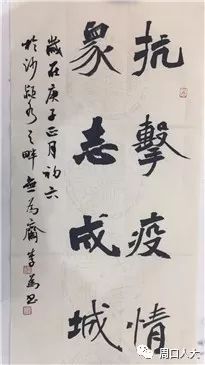 抗擊疫情
眾志成城
歲在庚子正月初六
於沙潁水之畔無為齋李
周口人大